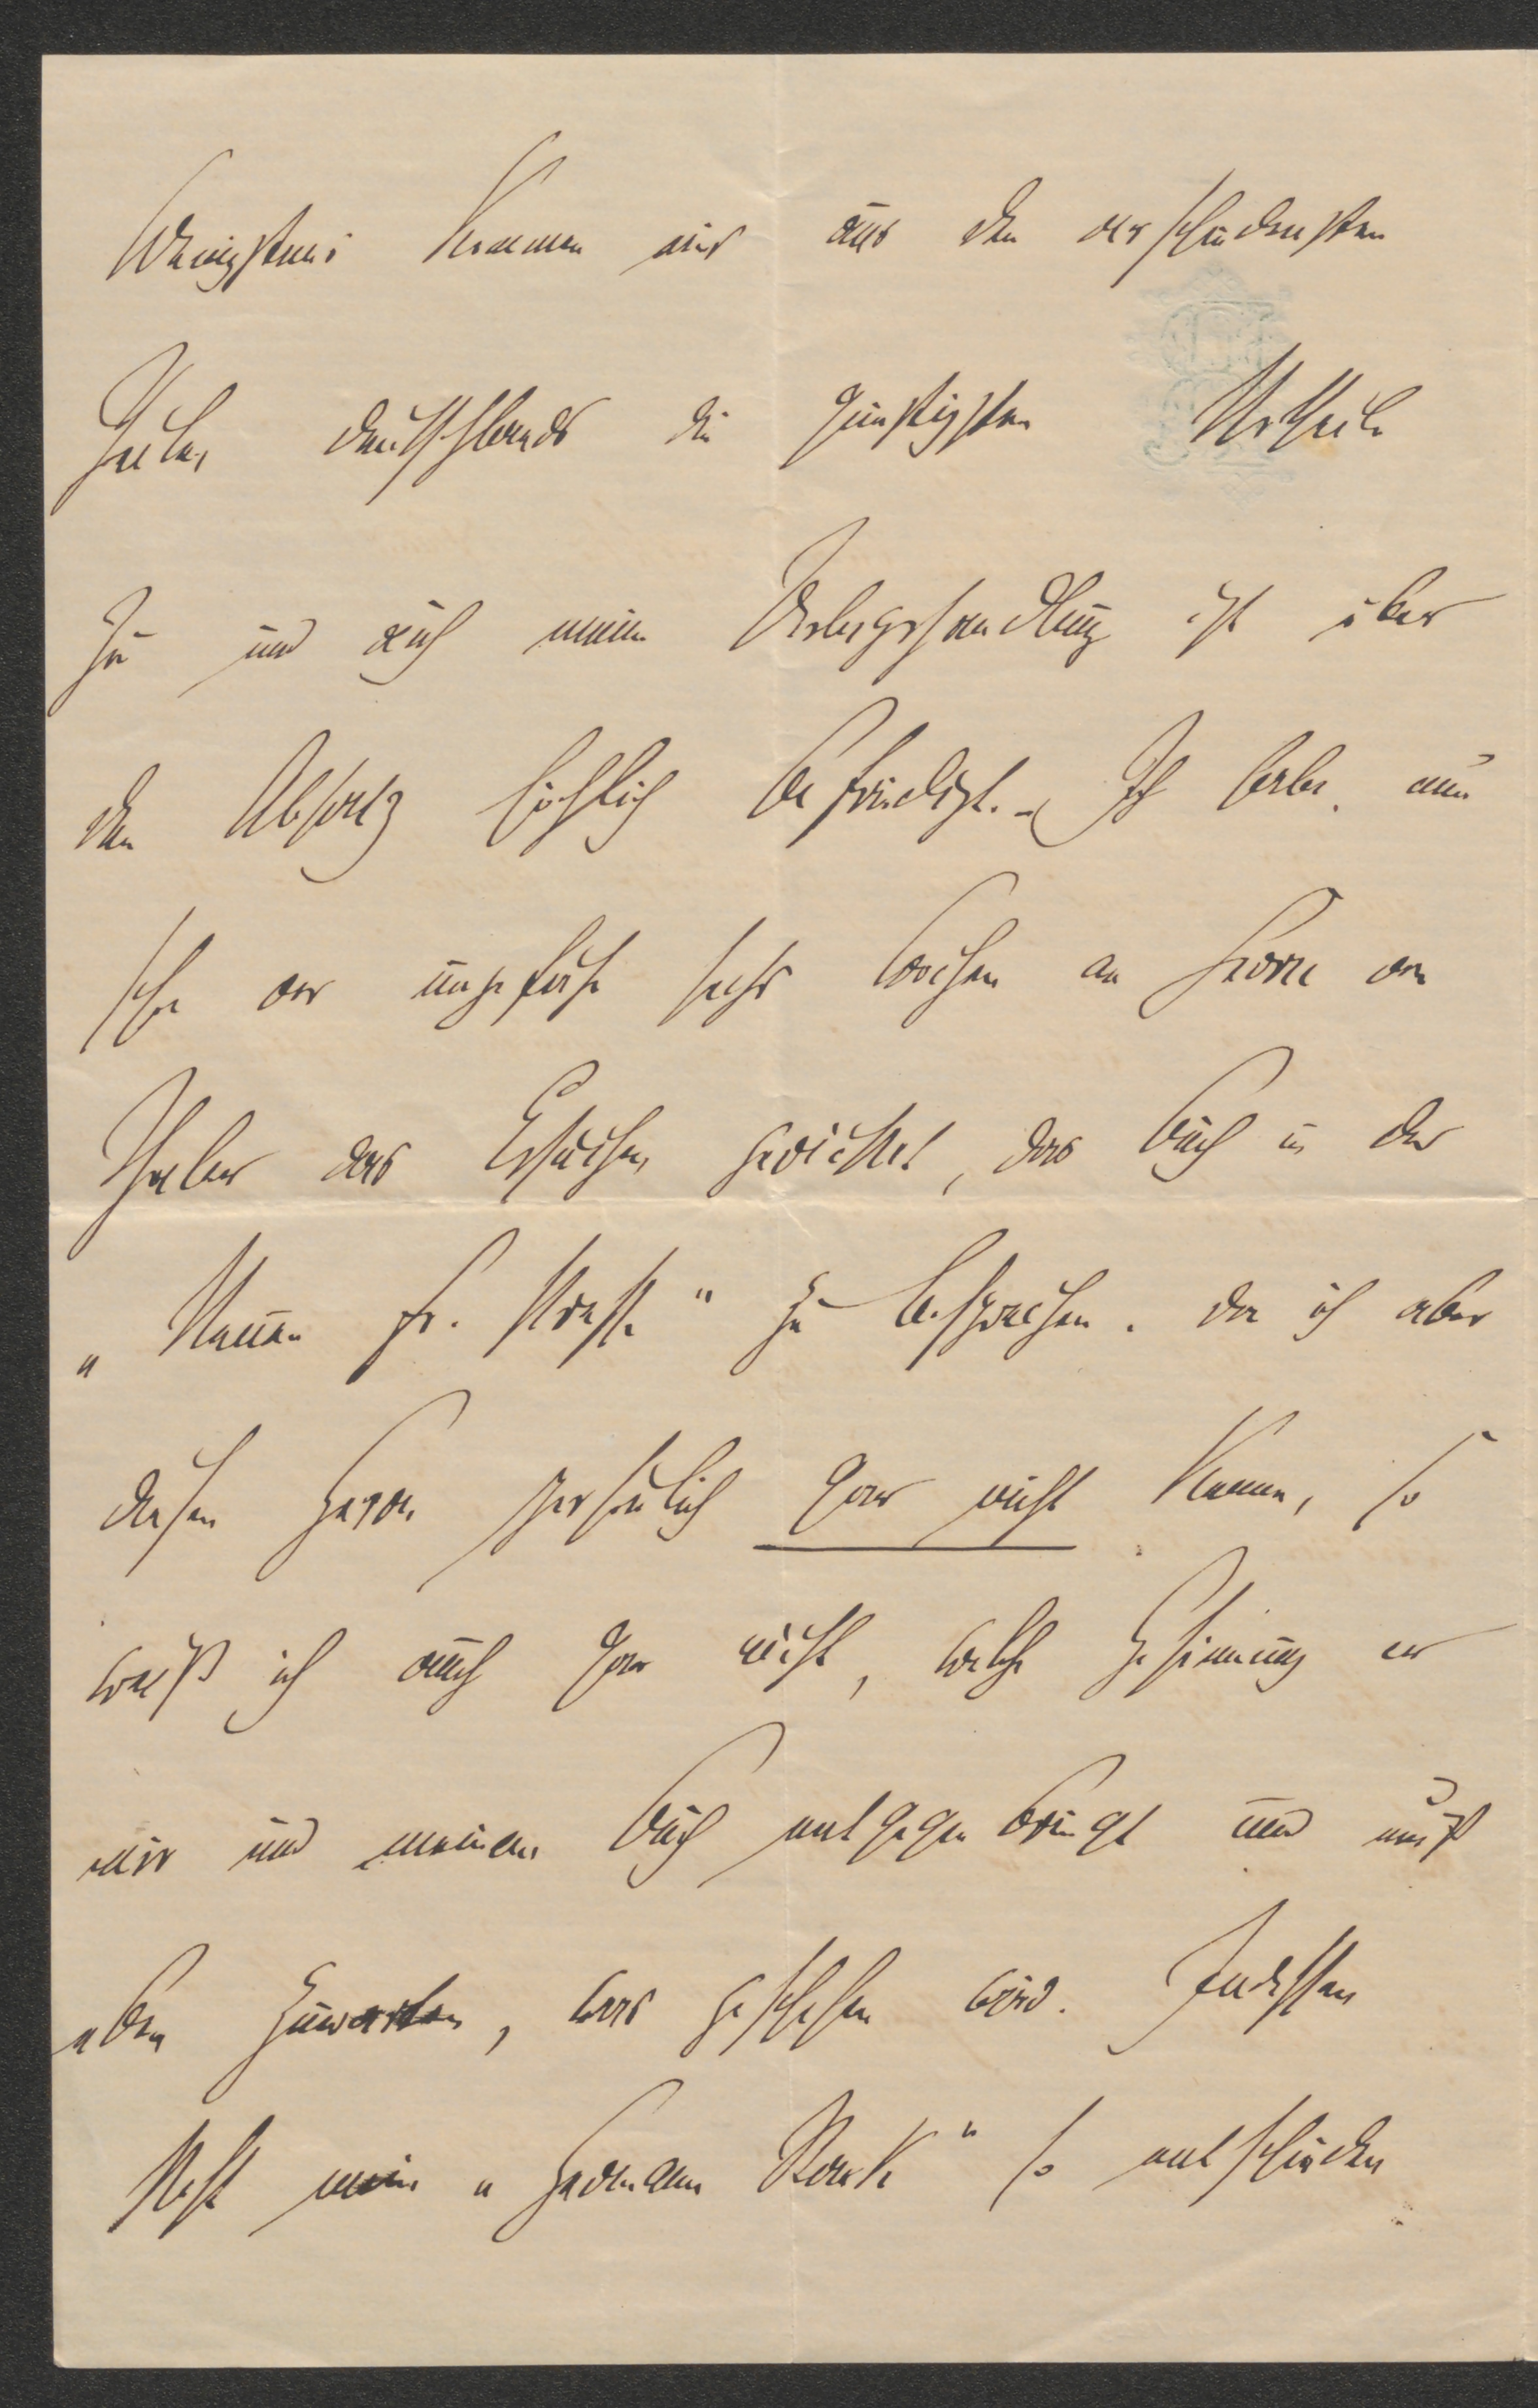 Wenigstens kommen mir aus den verschiedensten
Theilen Deutschlands die günstigsten Urtheile
zu und auch meine Verlagshandlung ist über
den Absatz höchlich befriedigt. – Ich habe nun
schon vor ungefähr sechs Wochen an Herrn von
Thaler das Ersuchen gerichtet, das Buch in der
„Neuen fr. Presse“ zu besprechen. Da ich aber
diesen Herrn persönlich gar nicht kenne, so
weiß ich auch gar nicht, welche Gesinnung er
mir und meinem Buch entgegenbringt und muß
eben zuwarten, was geschehen wird. Indessen
steht mein „Hermann Stark“ so entschieden